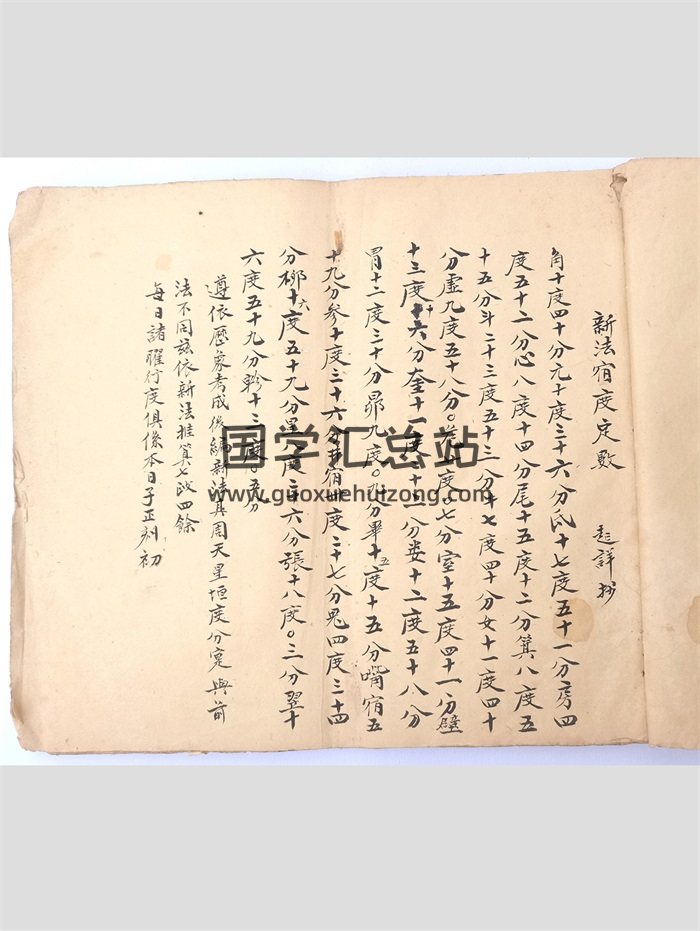 新法宿度定數 起詳抄
角十度四十分亢十度三十六分氐十七度五十一分房四
度五十二分心八度十四分尾十五度十二分箕八度五
十五分斗二十三度五十三分牛七度四十分女十一度四十
分虛九度五十八分危 度 七分室十五度四十一分壁
十三度十六分奎十一度三十一分娄十二度五十八分
胃十二度三十分昴九度〇九分畢十五度十五分嘴宿五
十九分参十度三十六分井宿 度二十七分鬼四度三十四
分柳十六度五十九分星八度三十六分張十八度〇三分翌十
六度五十九分軫十三度 五分
遵依歷象考成後編新法其周天星垣度分寔與前
法不同茲依新法推算七政四餘
每日諸曜行度俱係本日子正刻初
国学汇总站
www.guoxuehuizong.com